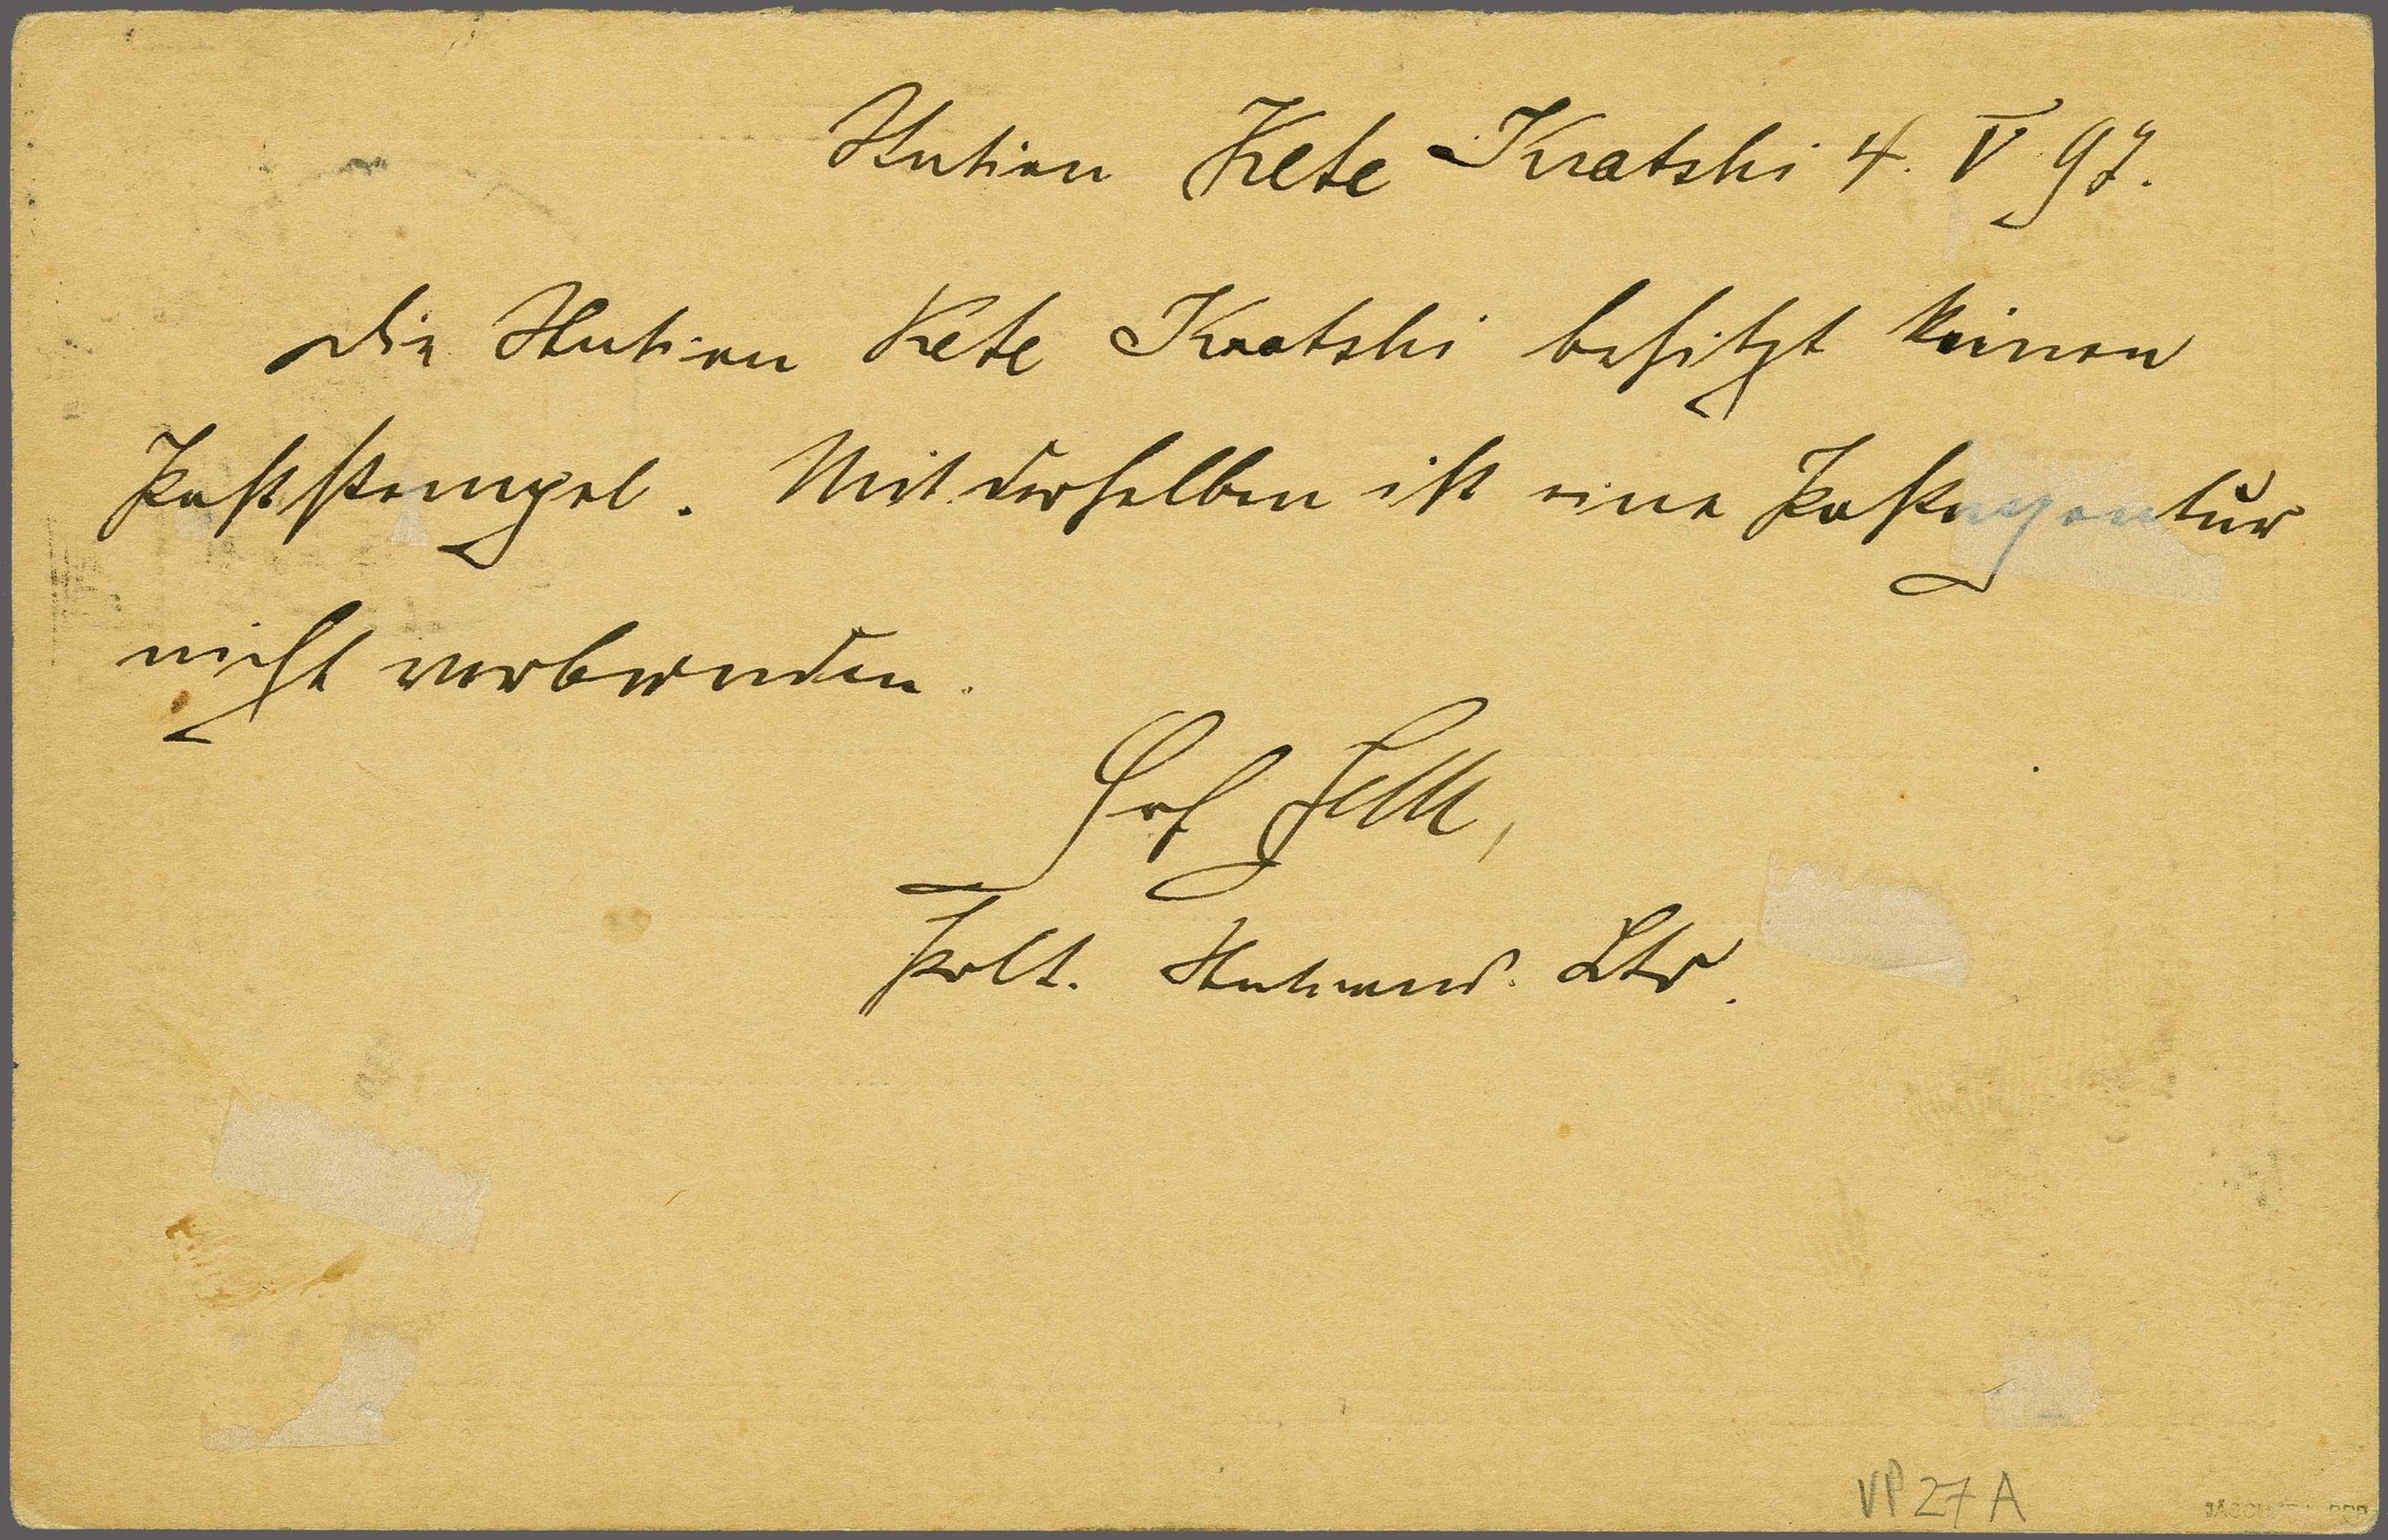 Station Kete Kratshi 4. V 97.
Die Station Kete Kratshi besitzt keinen
Poststempel. Mit derselben ist eine Postagentur
nicht verbunden.
Graf Zech,
Stations Ltr.
VP 27 A